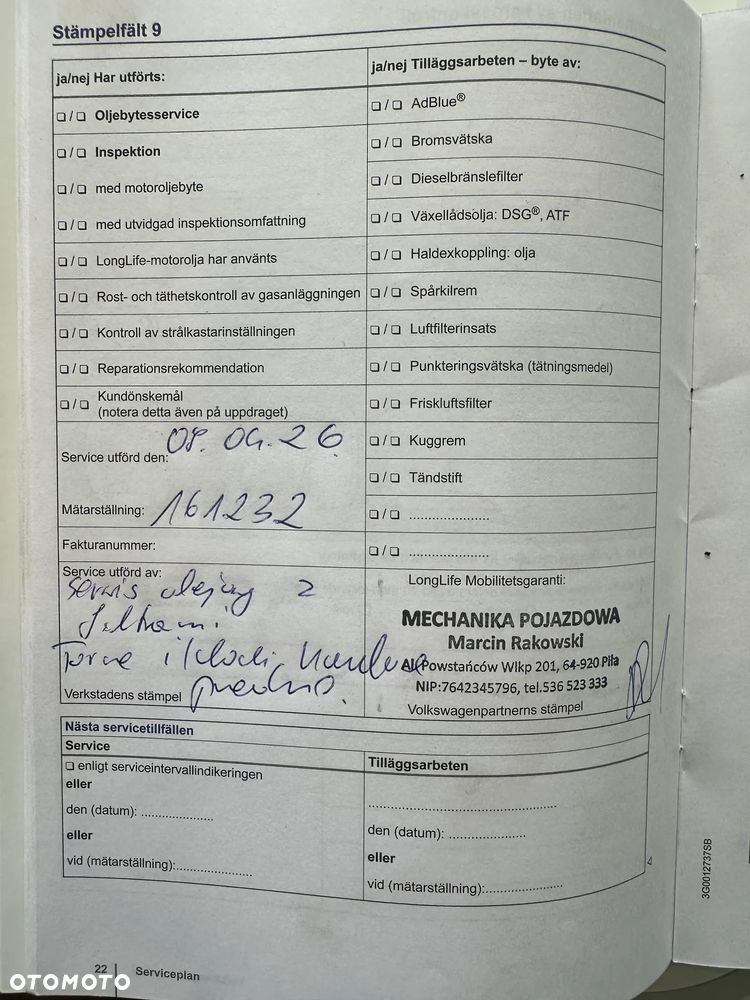 Stämpelfält 9
ja/nej Har utförts:
ja/nej Tilläggsarbeten – byte av:
❑ / ❑ Oljebytesservice
❑ / ❑ AdBlue®
❑ / ❑ Inspektion
❑ / ❑ Bromsvätska
❑ / ❑ med motoroljebyte
❑ / ❑ Dieselbränslefilter
❑ / ❑ med utvidgad inspektionsomfattning
❑ / ❑ Växellådsolja: DSG®, ATF
❑ / ❑ LongLife-motorolja har använts
❑ / ❑ Haldexkoppling: olja
❑ / ❑ Rost- och täthetskontroll av gasanläggningen
❑ / ❑ Spårkilrem
❑ / ❑ Kontroll av strålkastarinställningen
❑ / ❑ Luftfilterinsats
❑ / ❑ Reparationsrekommendation
❑ / ❑ Punkteringsvätska (tätningsmedel)
❑ / ❑ Kundönskemål
(notera detta även på uppdraget)
❑ / ❑ Friskluftsfilter
❑ / ❑ Kuggrem
Service utförd den: 08.04.26
❑ / ❑ Tändstift
Mätarställning: 161232
❑ / ❑ .....................
Fakturanummer:
❑ / ❑ .....................
Service utförd av:
serwis olejowy z
filtrami
i klocki
Verkstadens stämpel
LongLife Mobilitetsgaranti:
MECHANIKA POJAZDOWA
Marcin Rakowski
Al. Powstańców Wlkp 201, 64-920 Piła
NIP:7642345796, tel.536 523 333
Volkswagenpartnerns stämpel
Nästa servicetillfällen
Service
Tilläggsarbeten
❑ enligt serviceintervallindikeringen
eller
den (datum): ...................
eller
vid (mätarställning):....................
.................................................
den (datum): ....................
eller
vid (mätarställning):....................
3G0012737SB
22 Serviceplan
OTOMOTO